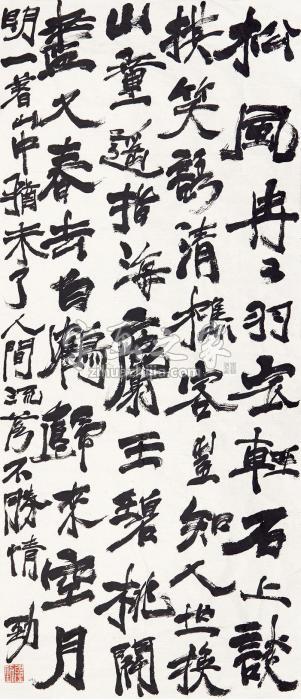 松風冉〻羽衣輕石上談
棋笑語清樵客豈知人世換
山童遥指海塵生碧桃開
盡又春去白鶴歸來空月
明一著山中猶未了人間流落不勝情 勁